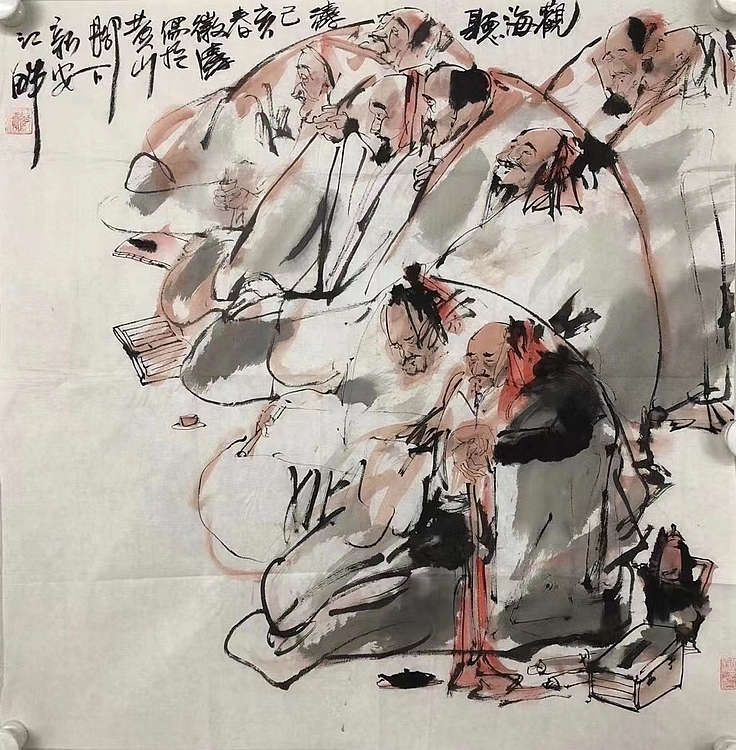 觀海聽濤
己亥春
徽濤
偶於
黃山
腳下
新安
江畔